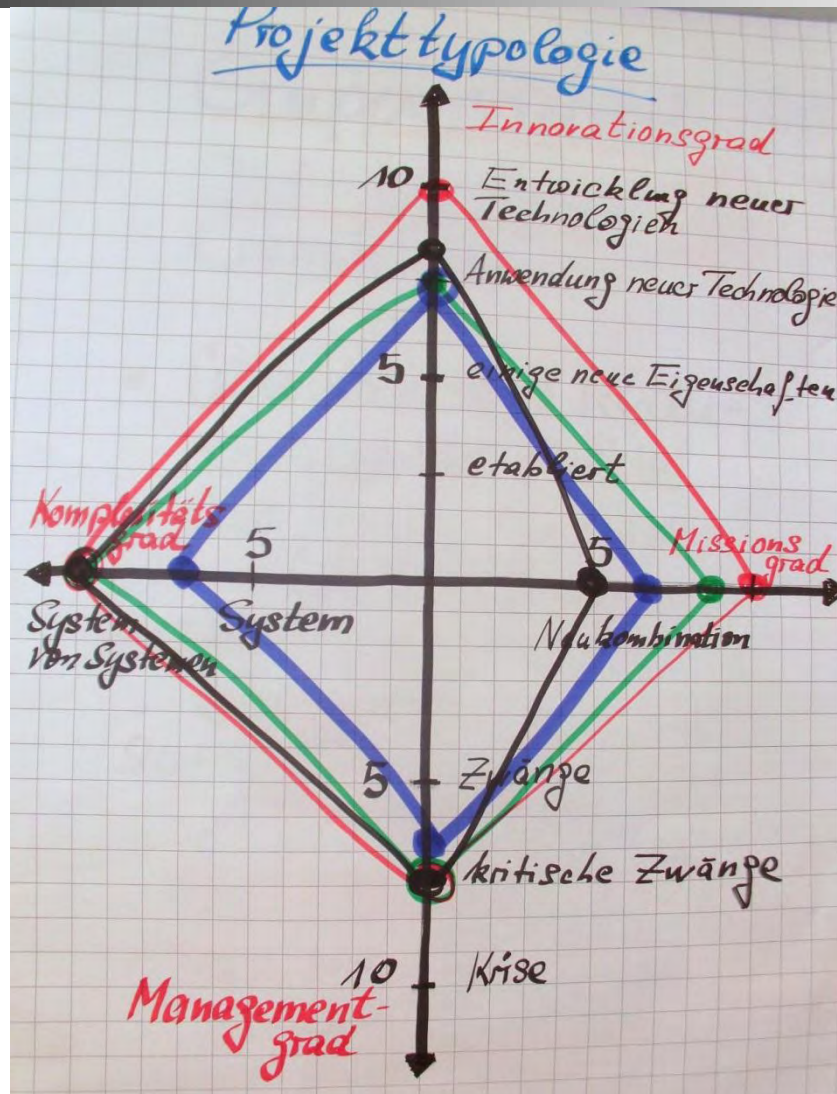 Projekttypologie
Innovationsgrad
10
Entwicklung neuer
Technologien
Anwendung neuer Technologie
5
einige neue Eigenschaften
etabliert
Komplexitäts
grad
5
5
Missions
grad
System
von Systemen
System
Neukombination
5
Zwänge
kritische Zwänge
10
Krise
Management-
grad